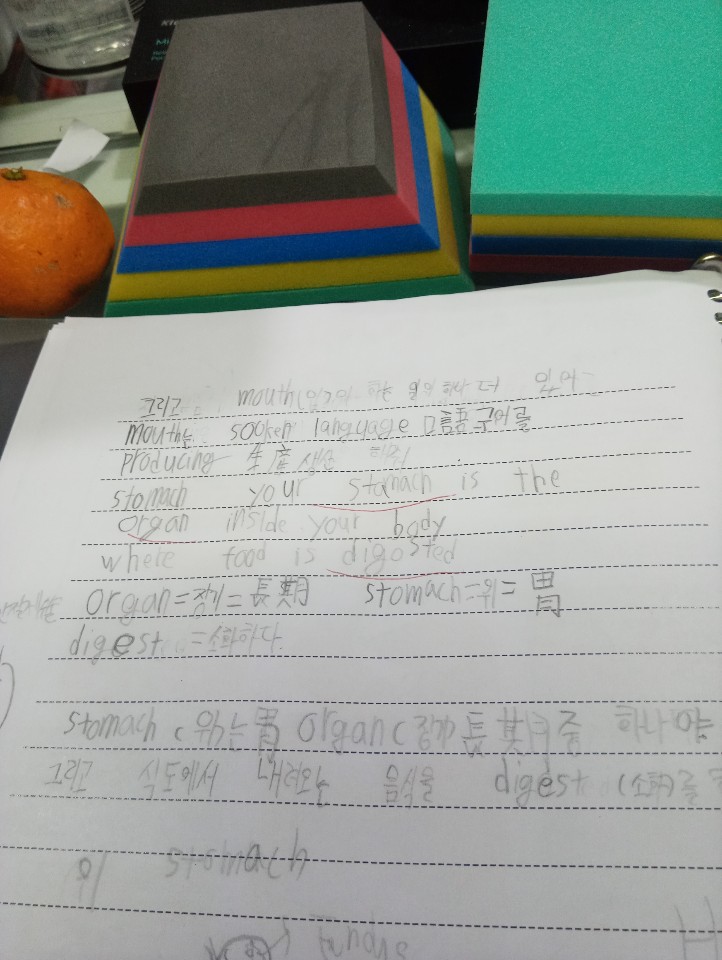 그리고 mouth(입)이 하는 일이 하나 더 있어
mouth는 sooken language 口語 구어를
producing 生産 생산 해줘
stomach your stomach is the
organ inside your body
where food is digosted
organ=장기=長期 stomach=위=胃
digest =소화하다.
stomach (위)는 胃 organ(장기 長其月 중 하나야
그리고 식도에서 내려오는 음식을 digest (소화)를